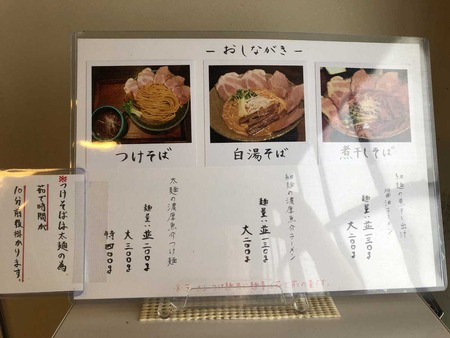 －おしながき－
つけそば
白湯そば
煮干しそば
太麺の濃厚魚介つけ麺
麺量い 並二〇〇g
大三〇〇g
特四〇〇g
細麺の濃厚魚介ラーメン
麺量い 並一三〇g
大二〇〇g
麺量い 並一三〇g
大二〇〇g
※つけそばは太麺の為
茹で時間が
10分前後掛かります。